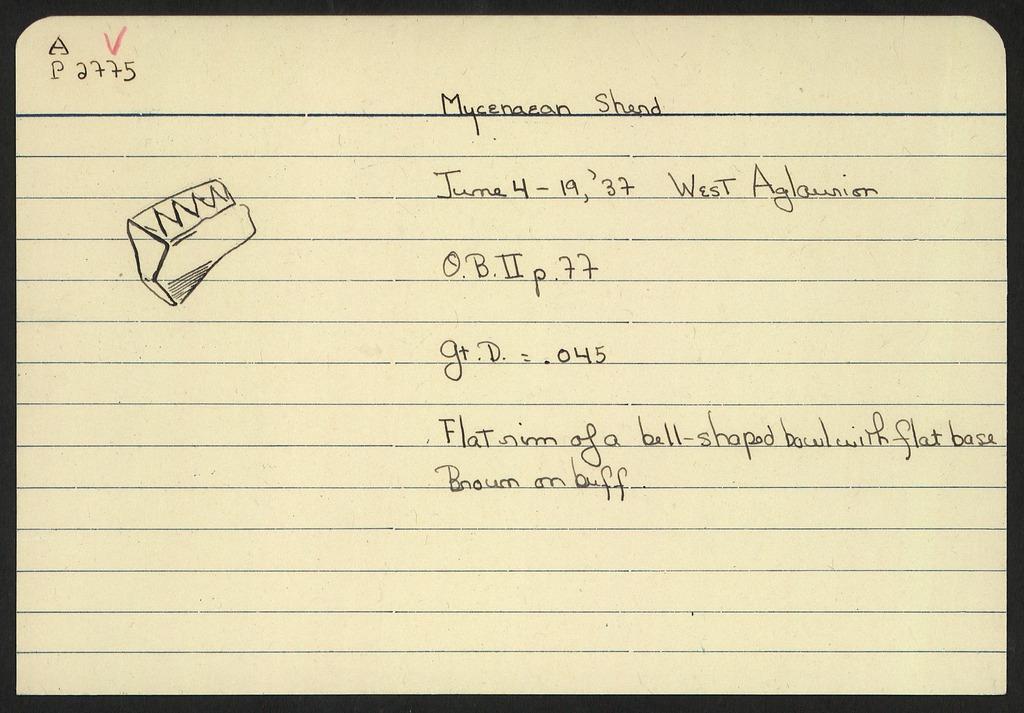 A V
P 2775
Mycenaean Sherd
June 4 - 19, '37 West Aglaurion
O.B. II p. 77
gt. D. = .045
Flat rim of a bell-shaped bowl with flat base
Brown on buff.